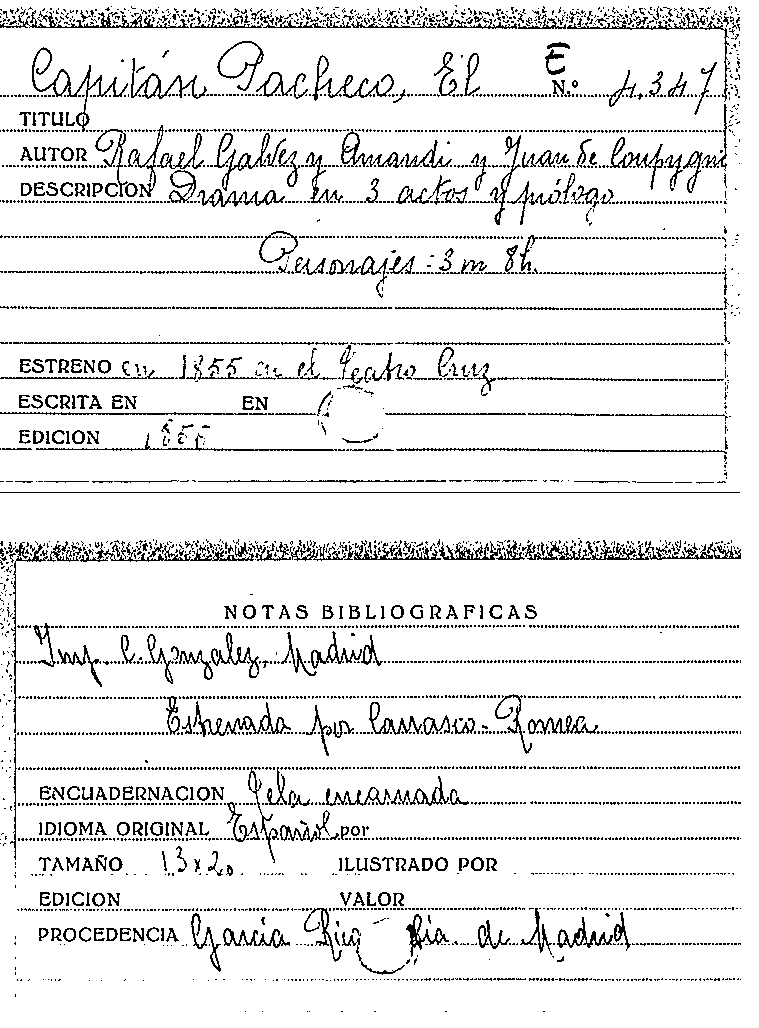 Capitán Pacheco, El E
N.º 4.347
TITULO
AUTOR Rafael Galvez y Amandi y Juan de Coupygni
DESCRIPCION Drama en 3 actos y prólogo
Personajes: 3 m 8 h.
ESTRENO en 1855 en el Teatro Cruz
ESCRITA EN EN
EDICION 1855
NOTAS BIBLIOGRAFICAS
Imp. C. Gonzalez, Madrid
Estrenada por Carrasco-Romea
ENCUADERNACION Tela encarnada
IDIOMA ORIGINAL Español por
TAMAÑO 13 x 20 ILUSTRADO POR
EDICION VALOR
PROCEDENCIA García Rico de Madrid